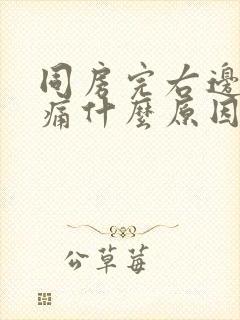 同房完右邊
痛什麼原因
公草莓